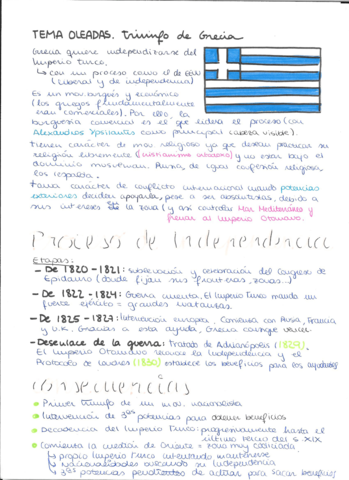 TEMA OLEADAS. Triunfo de Grecia
Grecia quiere independizarse del
Imperio Turco.
↳ con un proceso como el de EEUU
(liberal y de independencia)
Es un mov burgués y económico
(los griegos fundamentalmente
eran comerciales). Por ello, la
burguesía comercial es el que lidera el proceso (con
Alexandros Ypsilantis como principal cabeza visible).
tienen carácter de mov religioso ya que desean practicar su
religión libremente (cristianismo ortodoxo) y no estar bajo el
dominio musulmán. Rusia, de igual confesión religiosa
los respalda.
toma carácter de conflicto internacional cuando potencias
exteriores deciden apoyarla, pese a ser absolutistas, debido a
sus intereses en la zona (y así controlar Mar Mediterráneo y
frenar al Imperio Otomano).
Procesos de Independencia
Etapas:
- De 1820-1821: sublevación y del Congreso de
Epidauro (donde fijan sus fronteras, zonas...)
- De 1822-1824: Guerra cruenta. El Imperio Turco manda un
fuerte ejército = grandes matanzas.
- De 1825-1827: Intervención europea. Comienza con Rusia, Francia
y U.K. Gracias a esta ayuda, Grecia consigue vencer.
- Desenlace de la guerra: Tratado de Adrianópolis (1829).
El Imperio Otomano reconoce la independencia y el
Protocolo de Londres (1830) establece los beneficios para los ayudantes
consecuencias
Primer triunfo de un mov. nacionalista
Intervención de 3ªs potencias para obtener beneficios
Decadencia del Imperio Turco: progresivamente hasta el
último tercio del s. XIX
Comienza la cuestión de Oriente = zona muy codiciada
↳ propio Imperio Turco intentando mantenerse
↳ nacionalidades buscando su Independencia
↳ 3ªs potencias de actuar para sacar beneficios